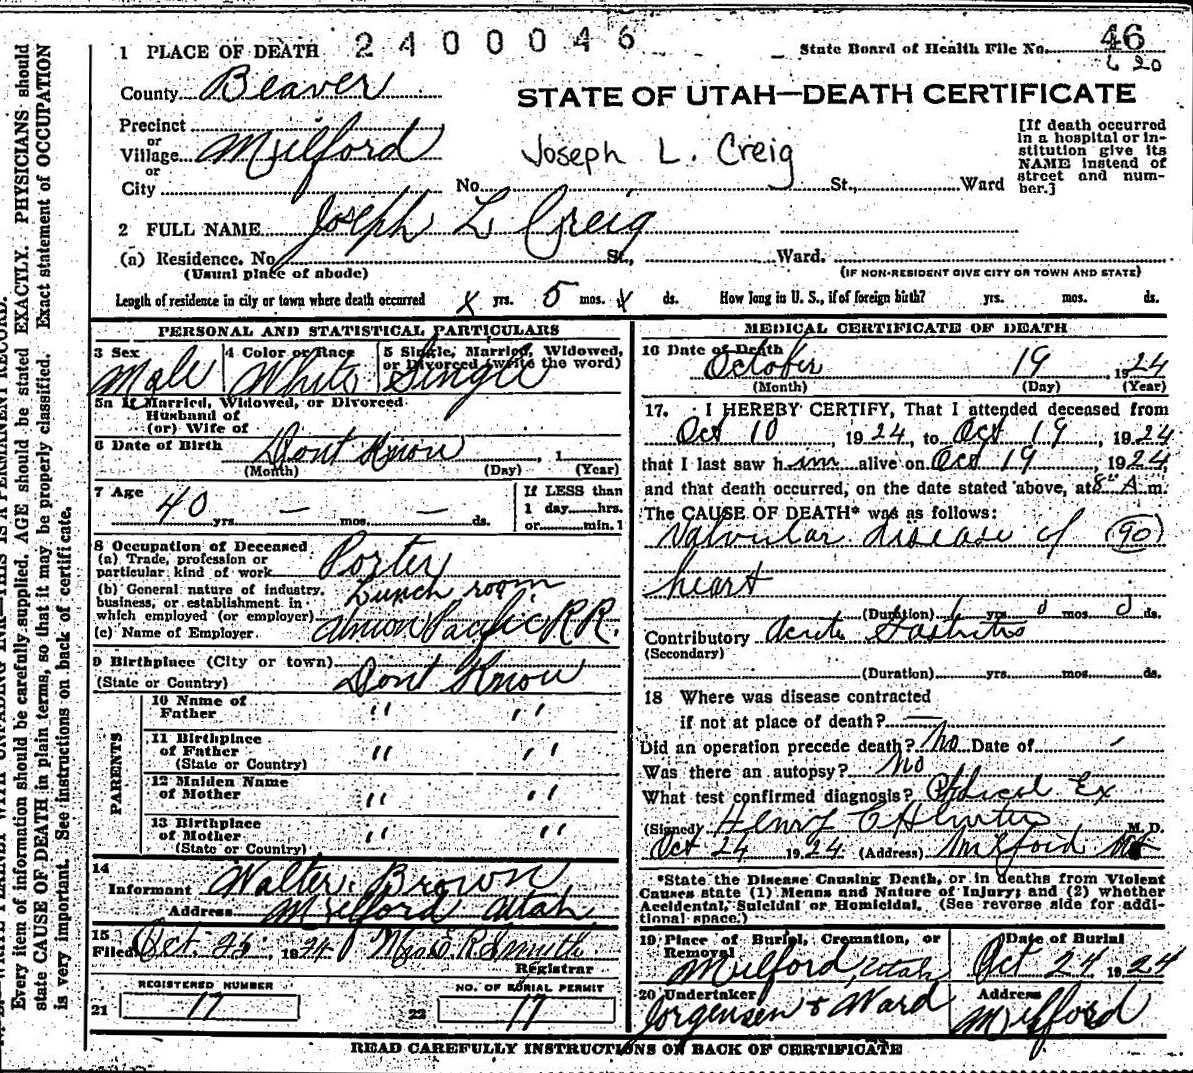 1 PLACE OF DEATH 2400046 State Board of Health File No. 46
County Beaver
STATE OF UTAH—DEATH CERTIFICATE
Precinct
or
Village Milford
or
City No. St., Ward
Joseph L. Creig
[If death occurred
in a hospital or in-
stitution give its
NAME instead of
street and num-
ber.]
2 FULL NAME Joseph L Creig
(a) Residence. No. St., Ward.
(Usual place of abode) (IF NON-RESIDENT GIVE CITY OR TOWN AND STATE)
Length of residence in city or town where death occurred x yrs. 5 mos. x ds. How long in U. S., if of foreign birth? yrs. mos. ds.
PERSONAL AND STATISTICAL PARTICULARS
3 Sex 4 Color or Race 5 Single, Married, Widowed,
or Divorced (write the word)
Male White Single
5a If Married, Widowed, or Divorced
Husband of
(or) Wife of
6 Date of Birth Dont Know , 1
(Month) (Day) (Year)
7 Age 40 yrs. — mos. — ds.
If LESS than
1 day hrs.
or min.
8 Occupation of Deceased
(a) Trade, profession or
particular kind of work Porter
(b) General nature of industry,
business, or establishment in
which employed (or employer) Lunch room
(c) Name of Employer. Union Pacific RR.
9 Birthplace (City or town)
(State or Country) Dont Know
PARENTS
10 Name of
Father " "
11 Birthplace
of Father " "
(State or Country)
12 Maiden Name
of Mother " "
13 Birthplace
of Mother " "
(State or Country)
14
Informant Walter Brown
Address Milford Utah
15
Filed Oct. 25, 1924 Mrs R Smith
Registrar
REGISTERED NUMBER
21 17
NO. OF BURIAL PERMIT
22 17
MEDICAL CERTIFICATE OF DEATH
16 Date of Death
October 19 1924
(Month) (Day) (Year)
17. I HEREBY CERTIFY, That I attended deceased from
Oct 10, 1924, to Oct 19, 1924
that I last saw him alive on Oct 19, 1924,
and that death occurred, on the date stated above, at 8 A m.
The CAUSE OF DEATH* was as follows:
Valvular disease of (90)
heart
(Duration) 1 yrs 0 mos. 0 ds.
Contributory Acute Gastritis
(Secondary)
(Duration) yrs. mos. ds.
18 Where was disease contracted
if not at place of death? —
Did an operation precede death? No Date of
Was there an autopsy? No
What test confirmed diagnosis? Physical Ex
(Signed) Henry C M. D.
Oct 24 1924 (Address) Milford
*State the Disease Causing Death, or in deaths from Violent
Causes state (1) Means and Nature of Injury; and (2) whether
Accidental, Suicidal or Homicidal. (See reverse side for addi-
tional space.)
19 Place of Burial, Cremation, or
Removal
Milford, Utah
Date of Burial
Oct 24 1924
20 Undertaker
Jorgensen & Ward
Address
Milford
READ CAREFULLY INSTRUCTIONS ON BACK OF CERTIFICATE
Every item of information should be carefully supplied. AGE should be stated EXACTLY. PHYSICIANS should
state CAUSE OF DEATH in plain terms, so that it may be properly classified. Exact statement of OCCUPATION
is very important. See instructions on back of certificate.